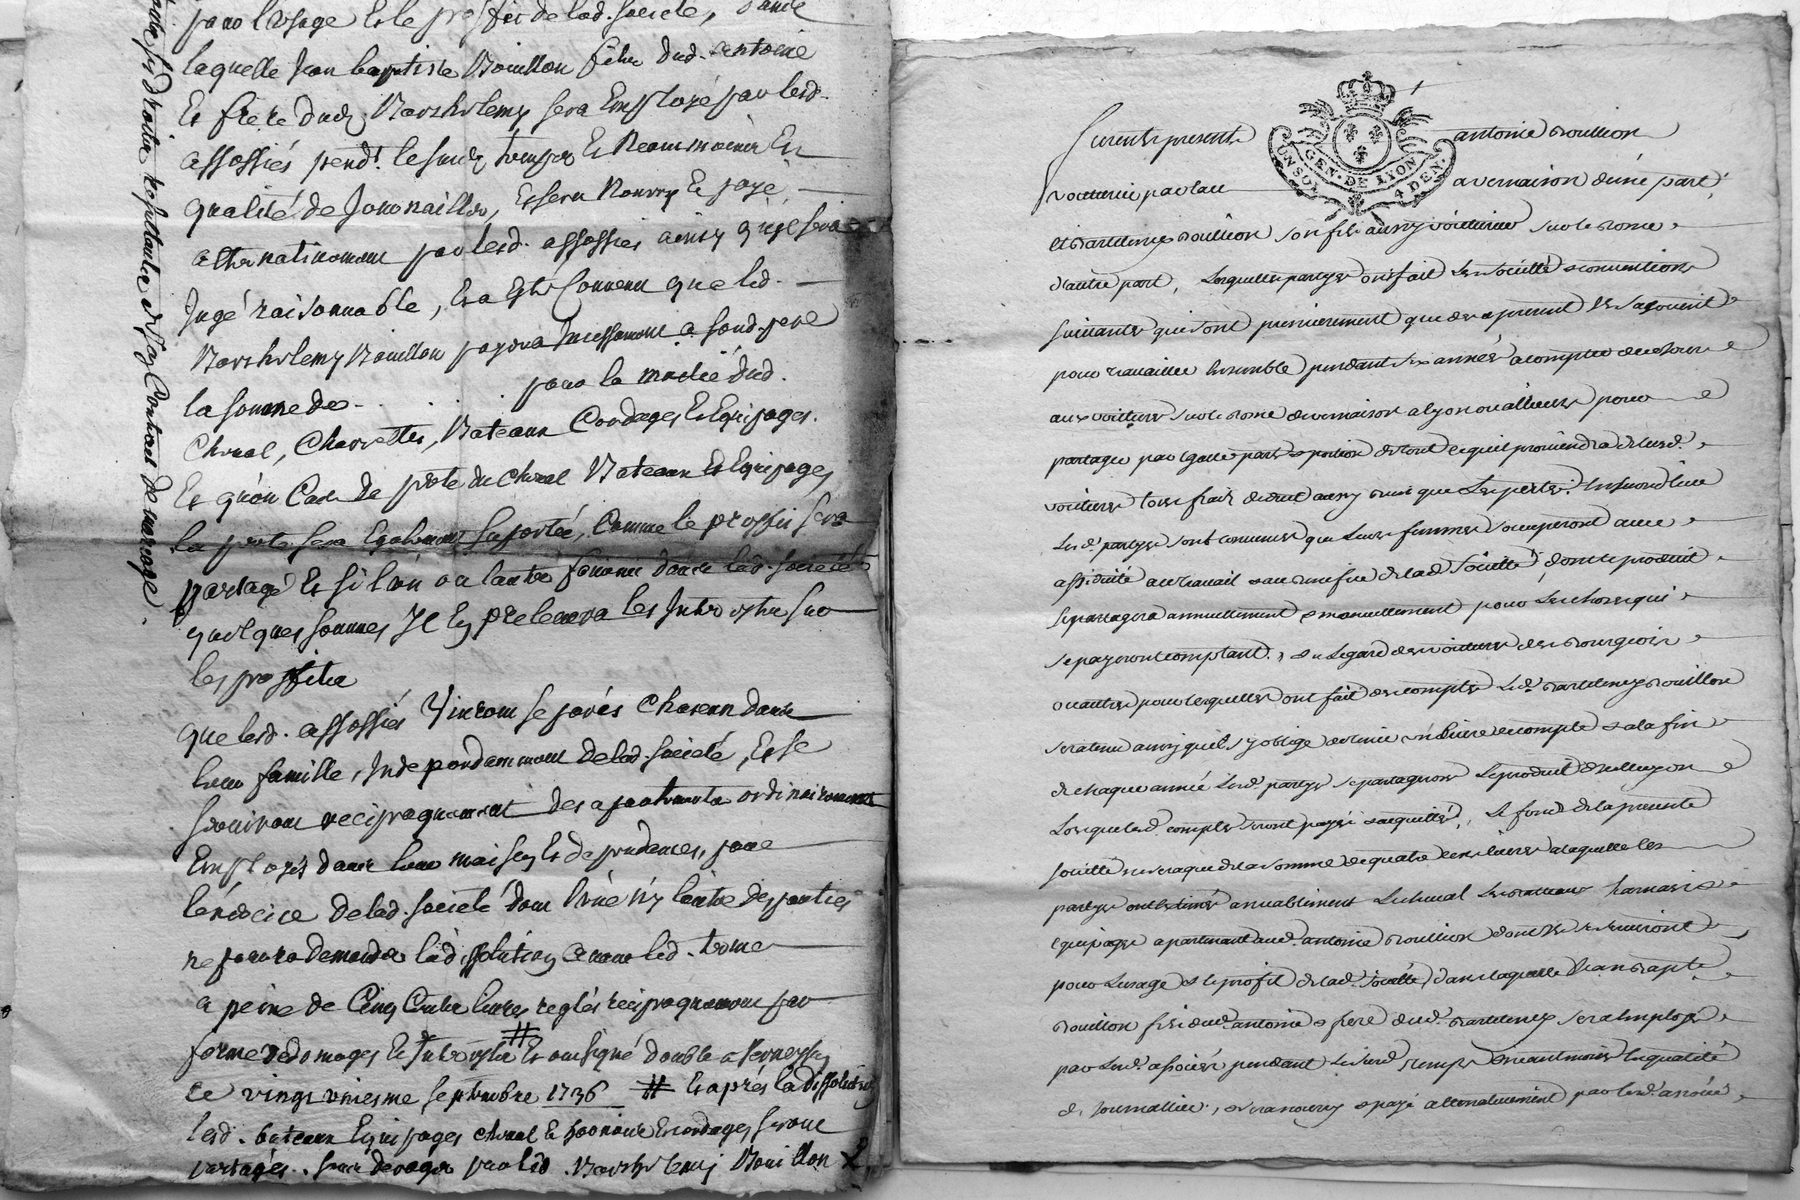 pour l'usage et le proffit de lad. société, dans
laquelle Jean baptiste Bouillon fils dud. antoine
Et frere dud. Barthelemy sera Employé par lesd.
assossiés pendt. le susd. temps Et Neanmoins En
qualité de Journaillier, Et sera Nourry Et payé
alternativement par lesd. assossiés ainsy qu'il sera
Jugé raisonnable, Et a Esté Convenu que led.
Barthelemy Bouillon payera Incessament a sond. pere
la somme de pour la moitié dud.
Cheval, Charrettes, Bateaux Cordages Et Equipages.
Et qu'en Cas de perte du Cheval Bateaux Et Equipages
la perte sera Egalement suportée, Comme le proffit sera
partagé Et si l'un ou l'autre fournit dans lad. société
quelques sommes Il En prelevera les Interets sur
les proffits
que lesd. assossiés Vivront separés Chacun dans
leur famille, Independamment de lad. société, Et se
serviront reciproquement des apartements ordinairement
Employés dans leur maison Et dependances, pour
l'exercice de lad. société dont l'une n'y l'autre des parties
ne pourra demander la dissolution avant led. terme
a peine de Cinq Cents livres reglés reciproquement par
forme de domages Et Interests # Et ont signé double a Vernaison
le vingt uniesme septembre 1736 # Et aprés la dissolution
lesd. bateaux Equipages cheval Et harnois Et cordages seront
partagés. par led. Barthelemy Bouillon
droits resultants de son Contract de mariage.
GEN. DE LYON
UN SOL 4 DEN.
furent present antoine Bouillon
voiturier par eau a vernaison d'une part
et Bartelemy Bouillon son fils aussy voiturier sur le Rone
d'autre part, Lesquelles partyes ont fait les société & conventions
suivantes qui sont premierement que des a present ils s'associent
pour travailler Ensemble pendant six années a compter de ce Jour
aux voitures sur le Rone de vernaison a lyon ou ailleurs pour
partager par Egalle part & portion de tout ce qui proviendra desd.
voitures tous frais deduit aussy bien que les pertes. En second lieu
Lesd. partyes sont convenues que Leurs femmes s'ocuperont avec
assiduité au travail & au benefice de lad. société, dont le produit
se partagera annuellement & manuellement pour les choses qui
se payeront comptant, & a l'egard des voitures des Bourgeois
ou autres pour lesquelles ont fait des comptes Led. Bartelemy Bouillon
sera tenu ainsy qu'il s'y oblige de tenir un livre de compte & a la fin
de chaque année Lesd. partyes se partageront le produit
Lorsque lesd. comptes seront payés & acquittés, Le fond de la presente
société sera que de la somme de quatre cens livres a laquelle les
partyes ont estimés amiablement Le cheval Les Batteaux harnais &
equipages apartenant aud. antoine Bouillon dont ils se serviront
pour L'usage & le profit de lad. société, dans laquelle Jean Bapte.
Bouillon fils dud. antoine & frere dud. Bartelemy sera Employé
par Lesd. associés pendant Le susd. temps & neantmoins En qualité
de Journallier, & sera nourry & payé alternativement par lesd. associés